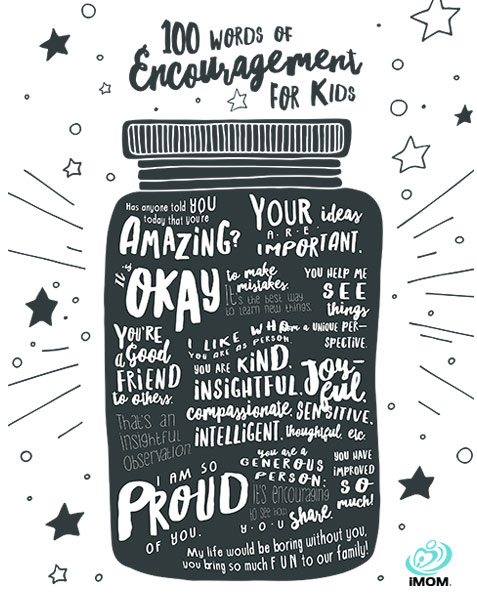 100 WORDS OF
Encouragement
FOR KIDS
Has anyone told YOU
today that you're
AMAZING?
YOUR ideas
ARE
IMPORTANT.
It is
OKAY
to make
mistakes.
It's the best way
to learn new things.
YOU HELP ME
SEE
things
from a UNIQUE PER-
SPECTIVE.
YOU'RE
a Good
FRIEND
to others.
I LIKE WHO
YOU ARE AS PERSON.
YOU ARE KIND.
INSIGHTFUL. JOY-
FUL.
compassionate. SENSITIVE.
INTELLIGENT. thoughtful. etc.
That's an
insightful
observation
you are a
GENEROUS
PERSON:
It's encouraging
to see how
YOU share.
YOU HAVE
IMPROVED
SO
much!
I AM SO
PROUD
OF YOU.
My life would be boring without you,
you bring so much FUN to our family!
iMOM.